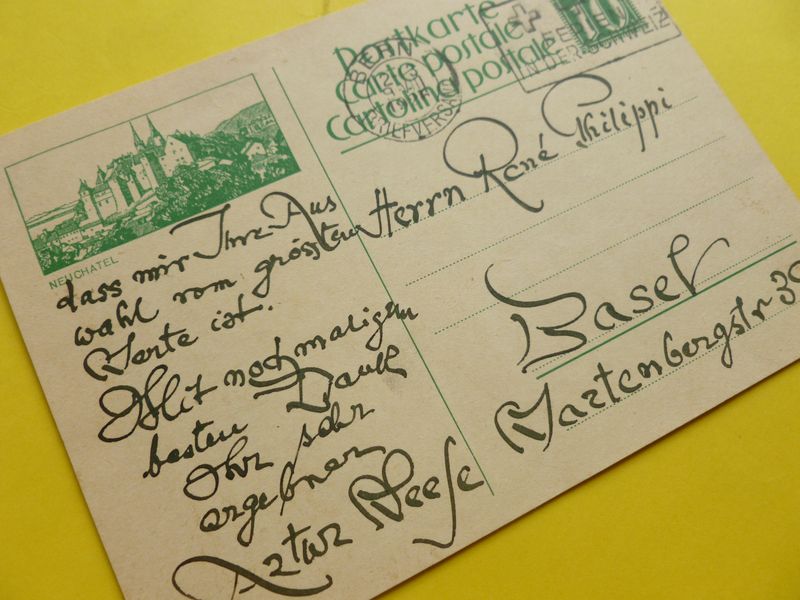 Postkarte
Carte postale
Cartolina postale
BERN
BRIEFVERSAND
IN DER SCHWEIZ
10
NEUCHATEL
dass mir Ihre Aus
wahl vom grössten
Werte ist.
Mit nochmaligem
besten Dank
Ihr sehr
ergebner
Artur Weese
Herrn René Philippi
Basel
Wartenbergstr 39